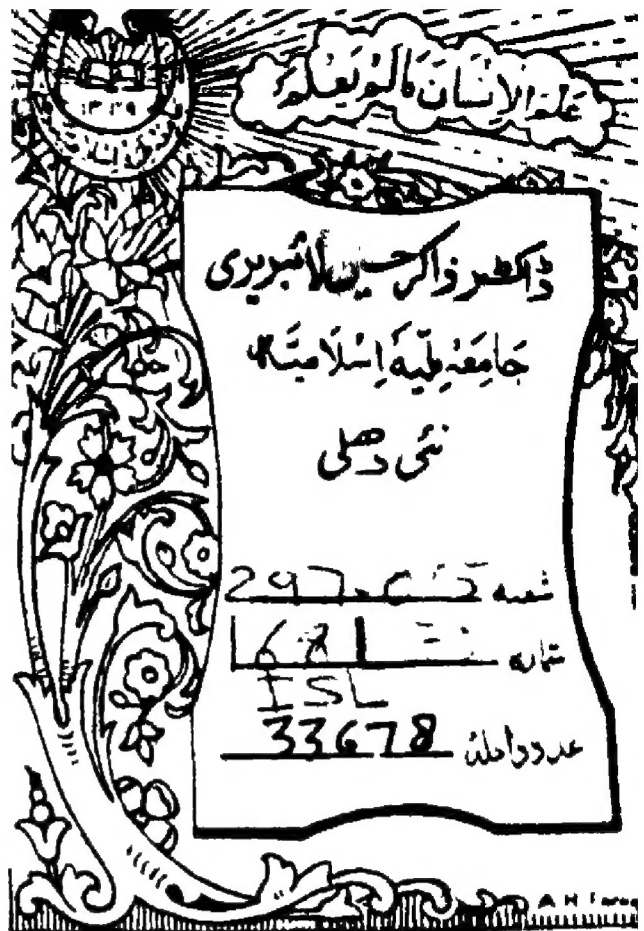 ۱۳۳۹
عَلَّمَ الْاِنْسَانَ مَا لَمْ يَعْلَمْ
ڈاکٹر ذاکر حسین لائبریری
جَامِعَہ مِلّیَہ اِسْلَامِیَہ
نئی دھلی
شعبہ 297.
شمارہ 168
ISL
عدد داخلہ 33678
A H